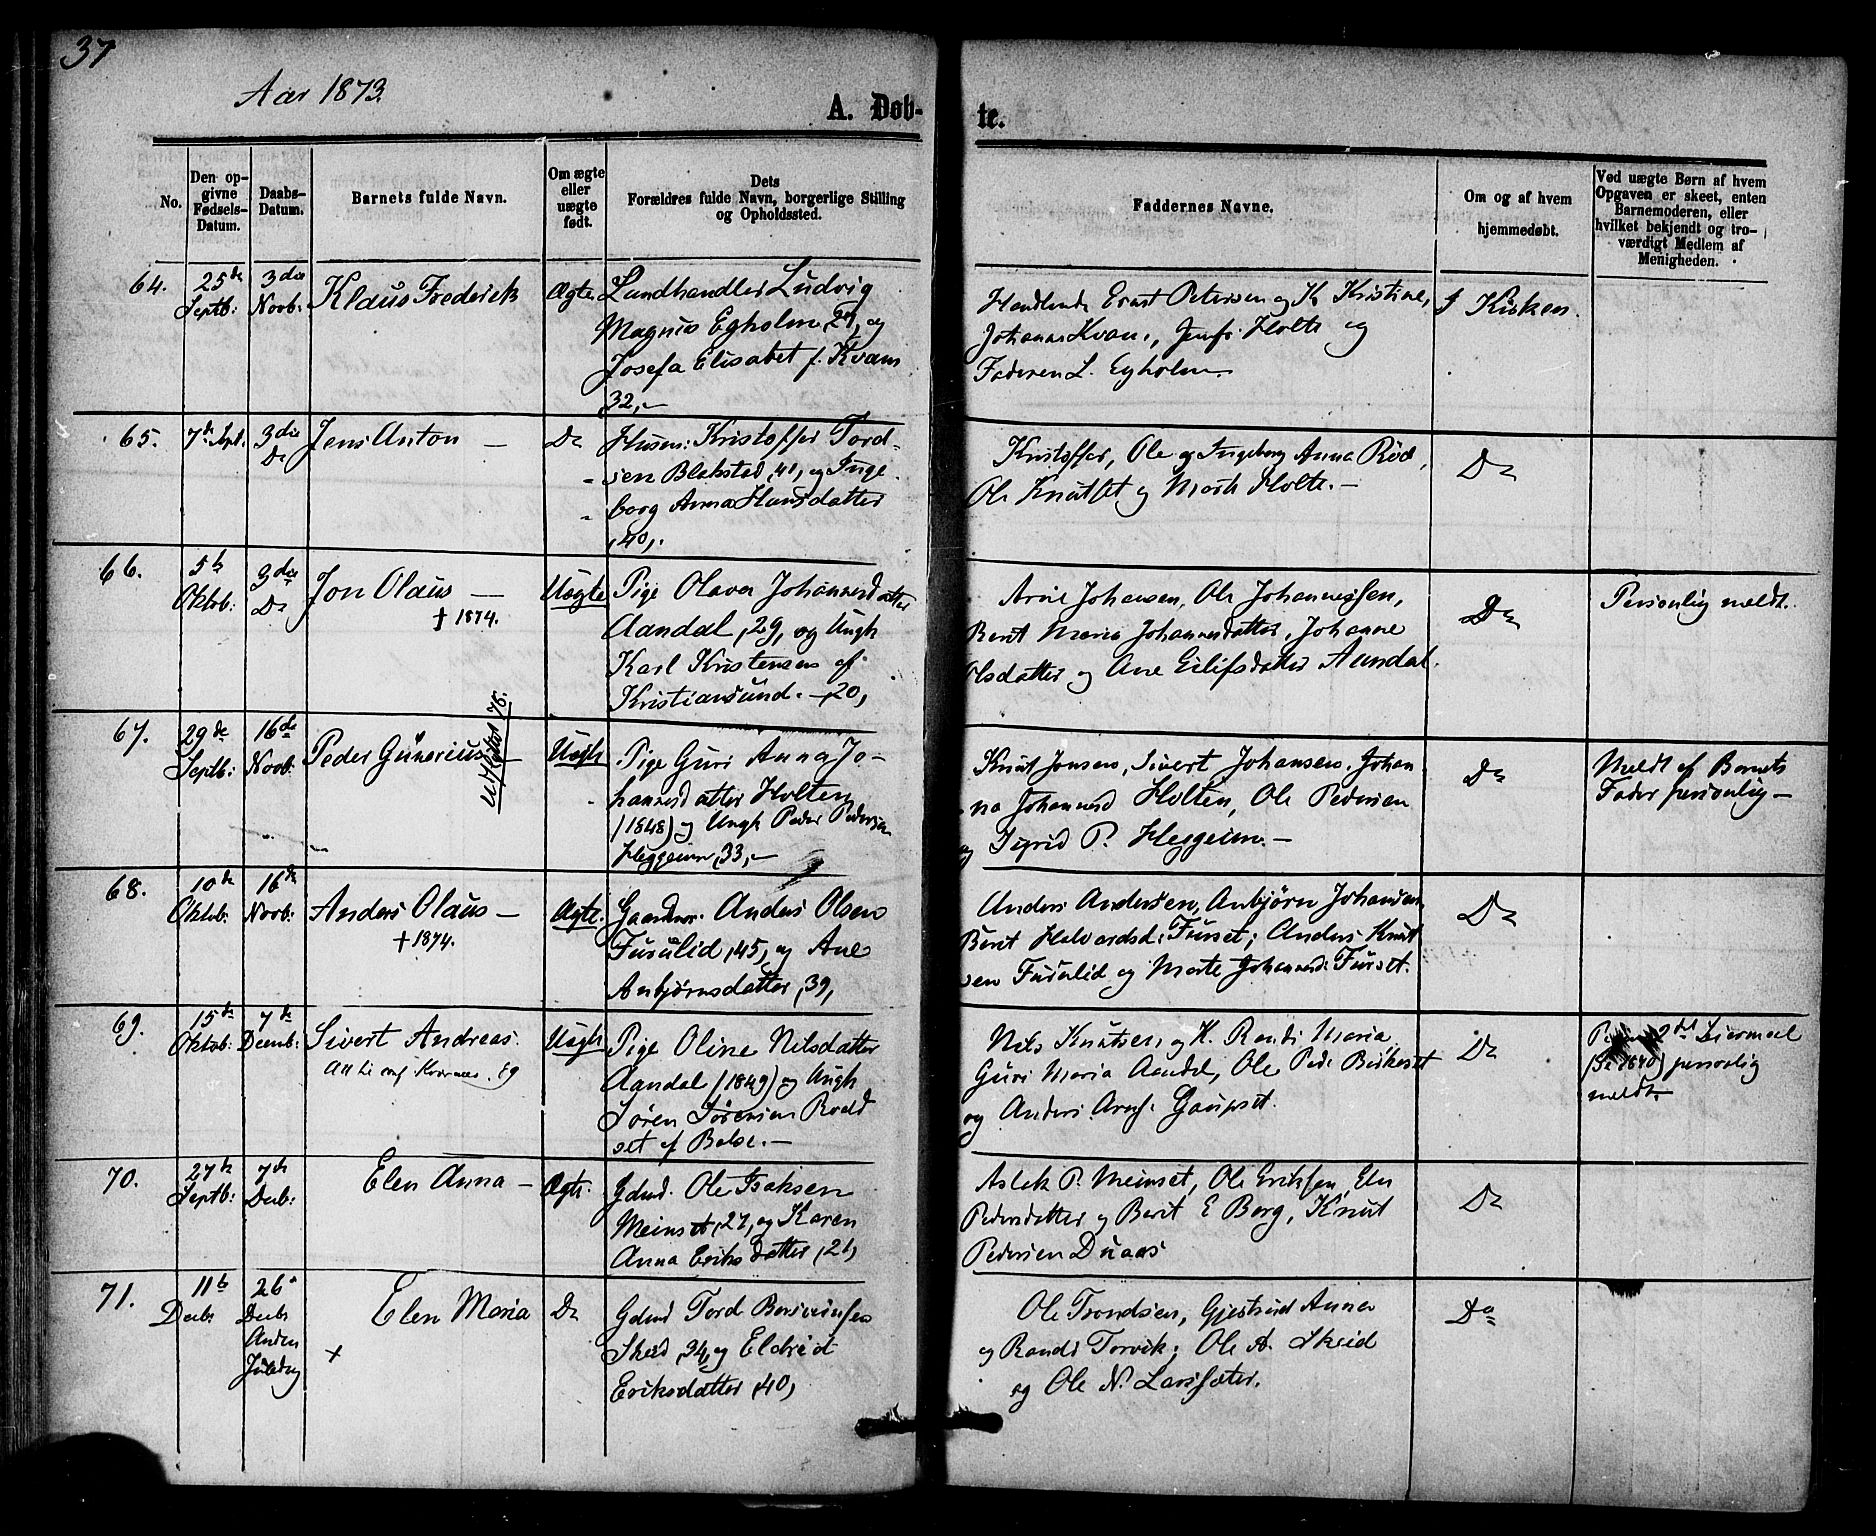 37
Aar 1873.
A. Døb-
te.
No.
Den op-
givne
Fødsels-
Datum.
Daabs-
Datum.
Barnets fulde Navn.
Om ægte
eller
uægte
født.
Dets
Forældres fulde Navn, borgerlige Stilling
og Opholdssted.
Faddernes Navne.
Om og af hvem
hjemmedøbt.
Ved uægte Børn af hvem
Opgaven er skeet, enten
Barnemoderen, eller
hvilket bekjendt og tro-
værdigt Medlem af
Menigheden.
64.
25de
Septb:
3die
Novb:
Klaus Frederik
Ægte
Landhandler Ludvig
Magnus Egholm, 29, og
Josefa Elisabet f. Kvam
32,-
Handlende Ernst Petersen og K. Kristine,
Johannes Kvam, Jomf: Holte og
Faderen L. Egholm.
I Kirken.
65.
7de Sept.
3die
Do
Jens Anton —
Do
Husm: Kristoffer Tord-
sen Blekstad, 41, og Inge-
borg Anna Hansdatter
, 40,.
Kristoffer, Ole og Ingeborg Anna Röe,
Ole Knutset og Marit Holte. —
Do
66.
5te
Oktob:
3die
Do
Jon Olaus —
† 1874.
Uægte
Pige Olava Johannesdatter
Aandal, 29, og Ungk
Karl Kristensen af
Kristiansund. —, 20,
Arne Johansen, Ole Johannessen,
Berit Maria Johannesdatter, Johanne
Olsdatter og Ane Eilifsdatter Aandal.
Do
Personlig meldt.
67.
29de
Septb:
16de
Novb:
Peder Gunerius
Uægte
Pige Guri Anna Jo-
hannesdatter Holten
(1848) og Ungk Peder Pedersen
Heggeim, 33,—
Knut Jonsen, Sivert Johansen, Johan
na Johannesd Holten, Ole Pedersen
og Sigrid P. Heggeim. —
Do
Meldt af Barnets
Fader personlig —
68.
10de
Oktob:
16de
Novb:
Anders Olaus —
† 1874.
Ægte.
Gaardmr. Anders Olsen
Furulid, 45, og Ane
Anbjørnsdatter, 39,
Anders Andersen, Anbjørn Johansen,
Berit Halvardsd: Furset; Anders Knut
sen Furulid og Marte Johannesd: Furset.
Do
69.
15de
Oktob:
7de
Decmb:
Sivert Andreas.
Uægte
Pige Oline Nilsdatter
Aandal (1849) og Ungk
Søren Sørensen Roald
set af Bolsø. —
Nils Knutsen og K. Randi Maria,
Guri Maria Aandal, Ole Peds Birkeset
og Anders Arnf. Gaupset.
Do
2det Leiermaal
personlig
meldt.
70.
27de
Septb:
7de
Decb:
Elen Anna —
Ægte.
Gdmd. Ole Isaksen
Meinset, 27, og Karen
Anna Eriksdatter, 21,
Aslak P. Meinset, Ole Eriksen, Elen
Pedersdatter og Berit E Berg, Knut
Pedersen Duaas
Do
71.
11te
Decbr
26de
Decbr
Anden
Juledag
Elen Maria
+
Do
Gdmd Tord Bersvensen
Skeid, 34, og Eldrid
Eriksdatter, 40,
Ole Trondsen, Gjertrud Anna
og Randi Torvik; Ole A. Skeid
og Ole N. Larssæter.
Do